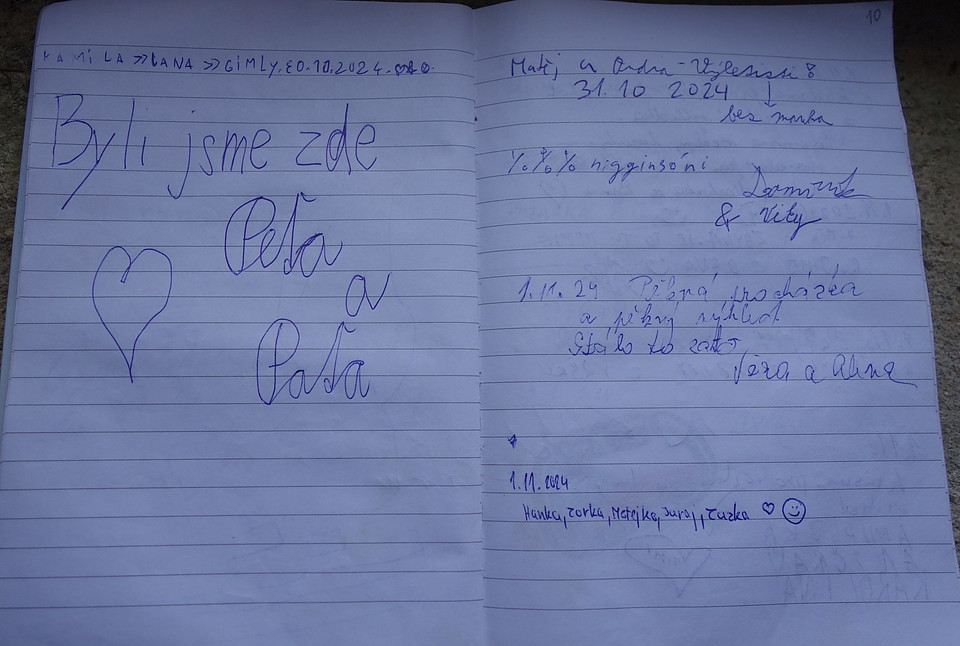 KAMILA >> LANA >> GIMLY. 30.10.2024.
Byli jsme zde
Peťa
a
Paťa
10
Matěj a Ondra - Výletníci!
31.10 2024 ↓
bez mapka
%%% higginsóni
Dominik
& Viky
1.11.24 Pěkná procházka
a pěkný výhled.
Stálo to zato
Věra a Alena
1.11.2024
Hanka, Zorka, Matejka, Juraj, Zuzka ♡ ☺